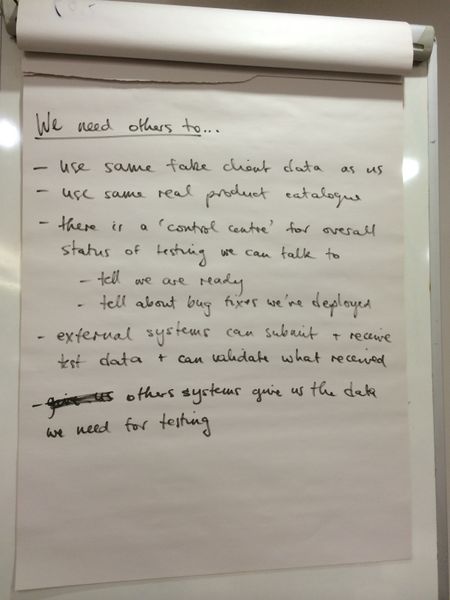 We need others to...
- use same fake client data as us
- use same real product catalogue
- there is a 'control centre' for overall
status of testing we can talk to
- tell we are ready
- tell about bug fixes we've deployed
- external systems can submit + receive
test data + can validate what received
- give us others systems give us the data
we need for testing